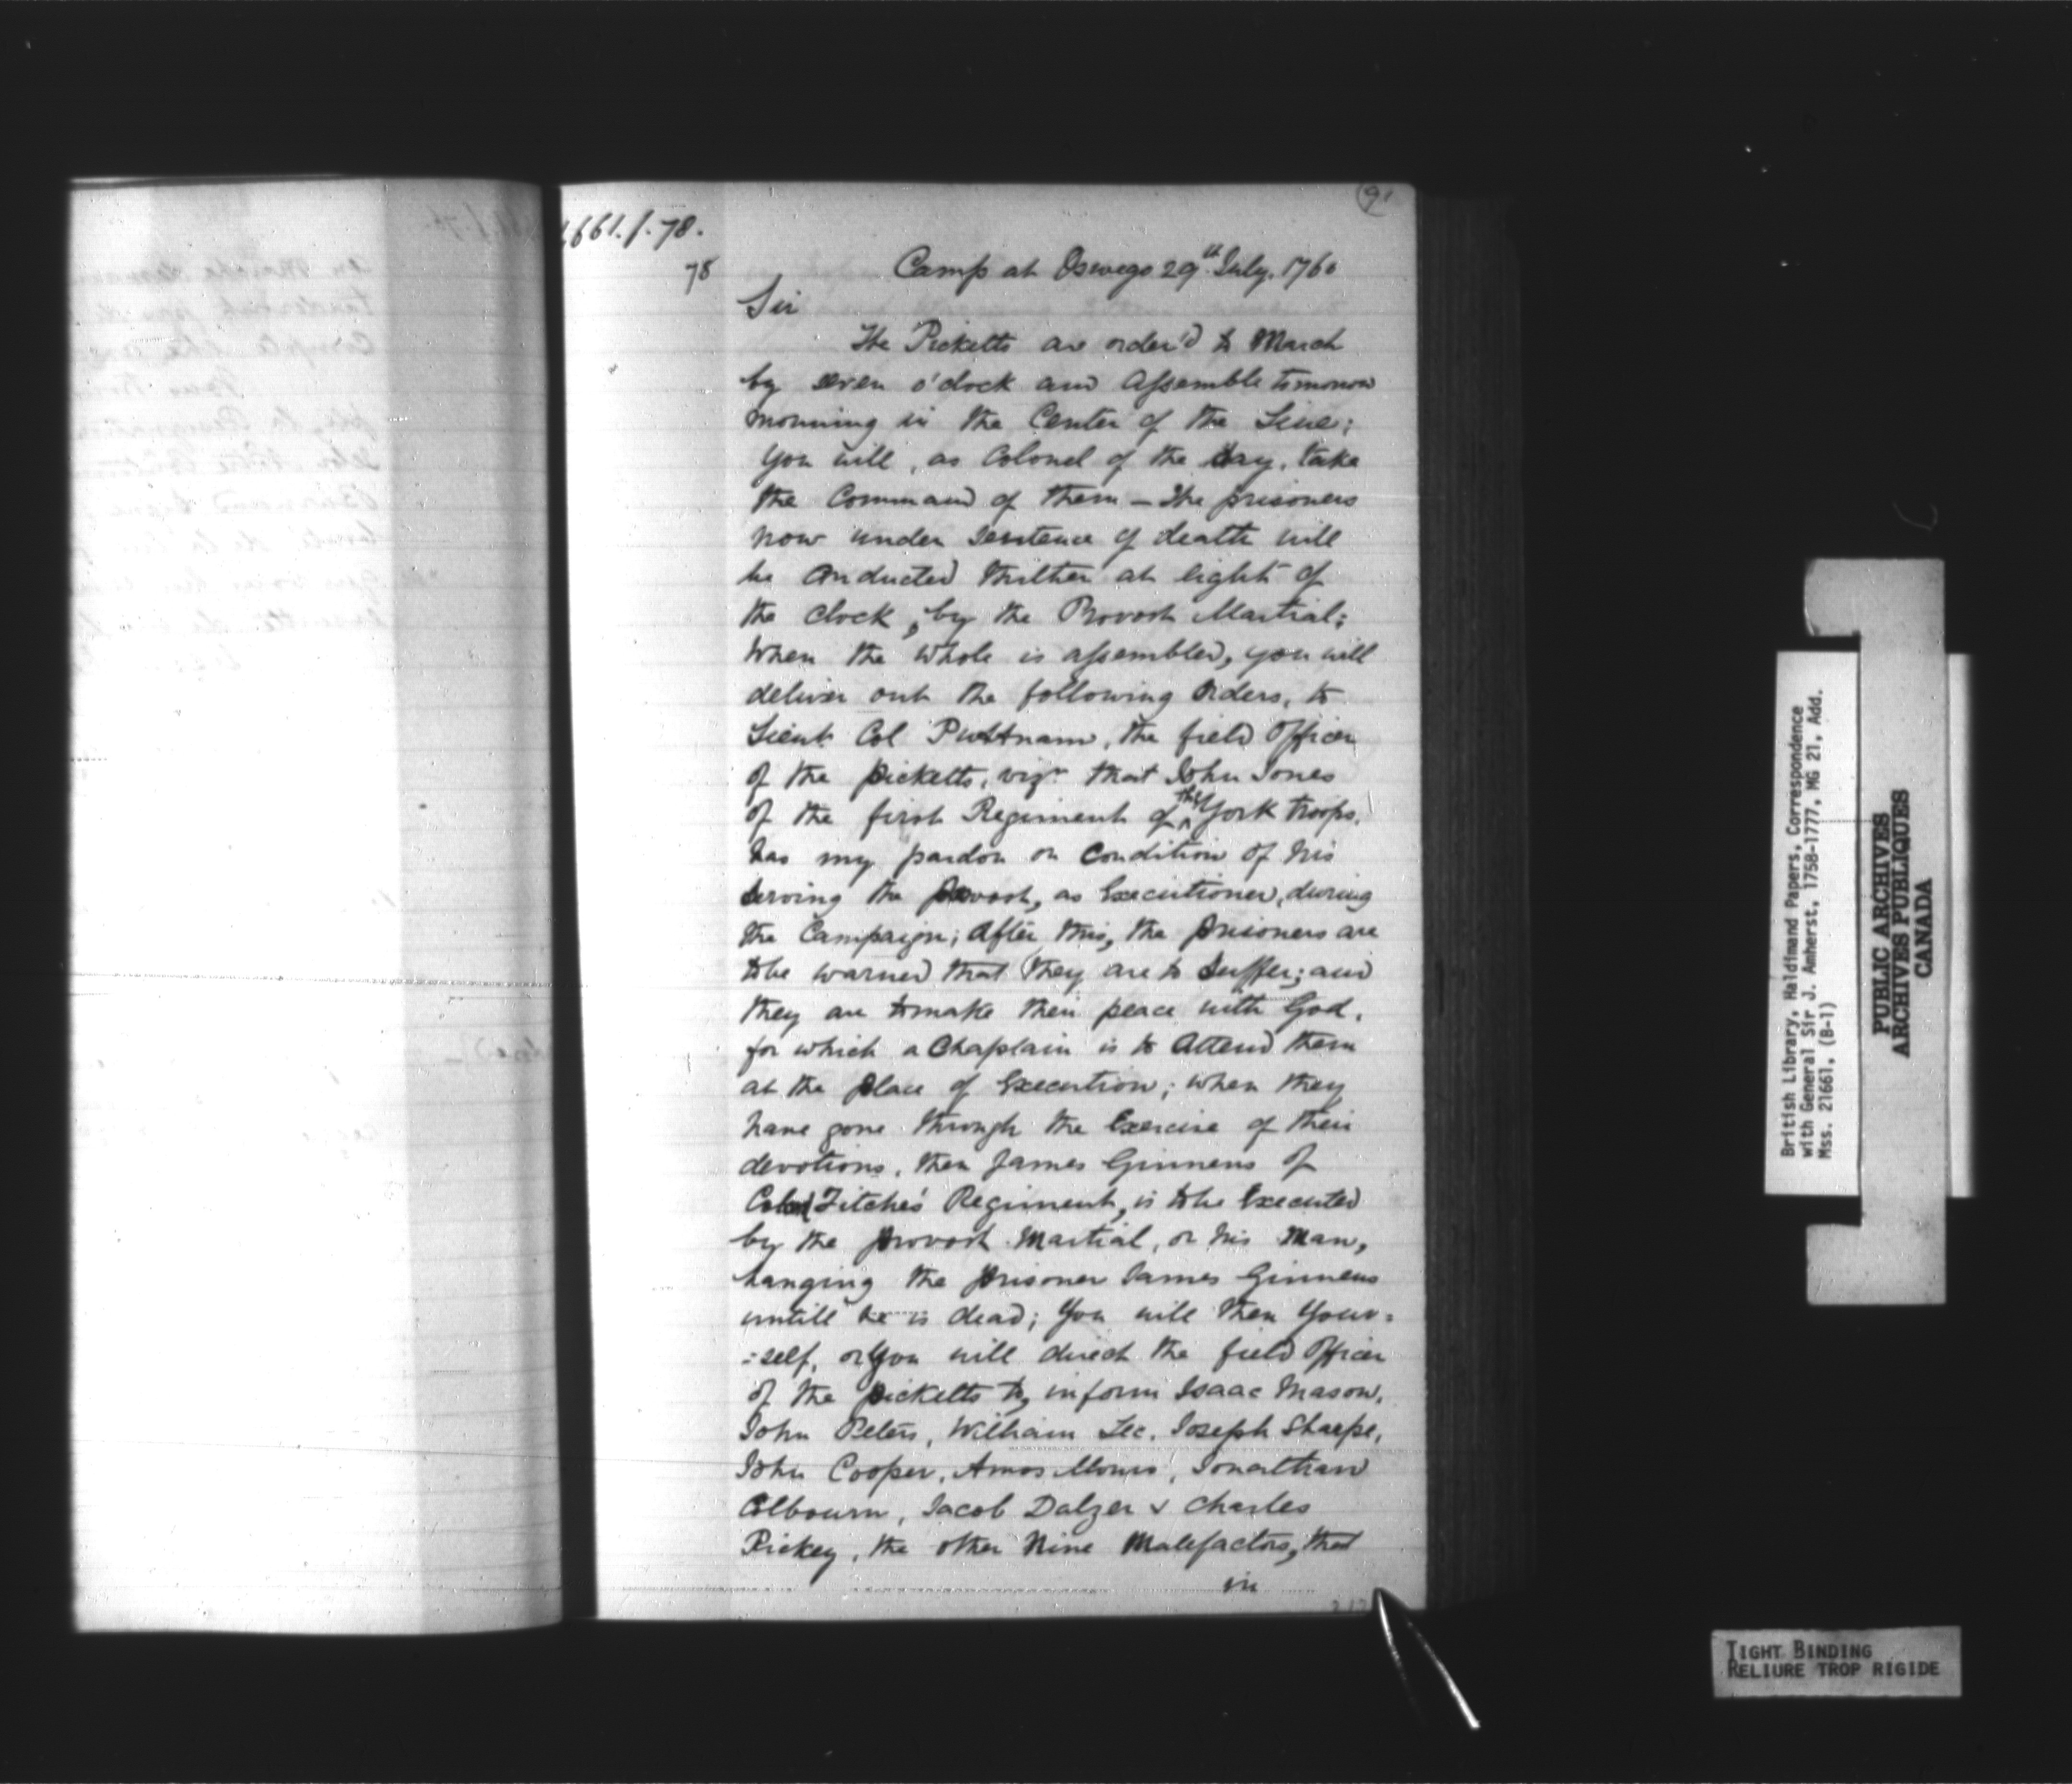 91
1661.f.78.
78
Camp at Oswego 29th July. 1760
Sir
The Picketts are order'd to March
by seven o'clock and Assemble tomorrow
morning in the Center of the Line;
You will, as Colonel of the day, take
the Command of them — The prisoners
now under Sentence of death will
be Conducted thither at eight of
the clock, by the Provost Martial;
When the whole is assembled, you will
deliver out the following Orders, to
Lieut Col Puttnam, the field Officer
of the picketts, vizt that John Jones
of the first Regiment of the York troops,
has my pardon on Condition of his
serving the provost, as Executioner, during
the Campaign; After this, the prisoners are
to be warned that they are to suffer; and
they are to make their peace with God,
for which a Chaplain is to Attend them
at the place of Execution; when they
have gone through the Exercise of their
devotions, then James Ginnens of
Colonel Fitche's Regiment, is to be Executed
by the provost Martial, or his Man,
hanging the prisoner James Ginnens
untill he is dead; You will then Your=
=self, or You will direct the field Officer
of the picketts to, inform Isaac Mason,
John Peters, William Lee, Joseph Sharpe,
John Cooper, Amos Morris, Jonathan
Colbourn, Jacob Dalzer & Charles
Rickey, the other Nine Malefactors, that
in
British Library, Haldimand Papers, Correspondence
with General Sir J. Amherst, 1758-1777, MG 21, Add.
Mss. 21661, (B-1)
PUBLIC ARCHIVES
ARCHIVES PUBLIQUES
CANADA
TIGHT BINDING
RELIURE TROP RIGIDE